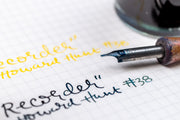 Recorder"
Howard Hunt
Recorder"
Howard Hunt #38